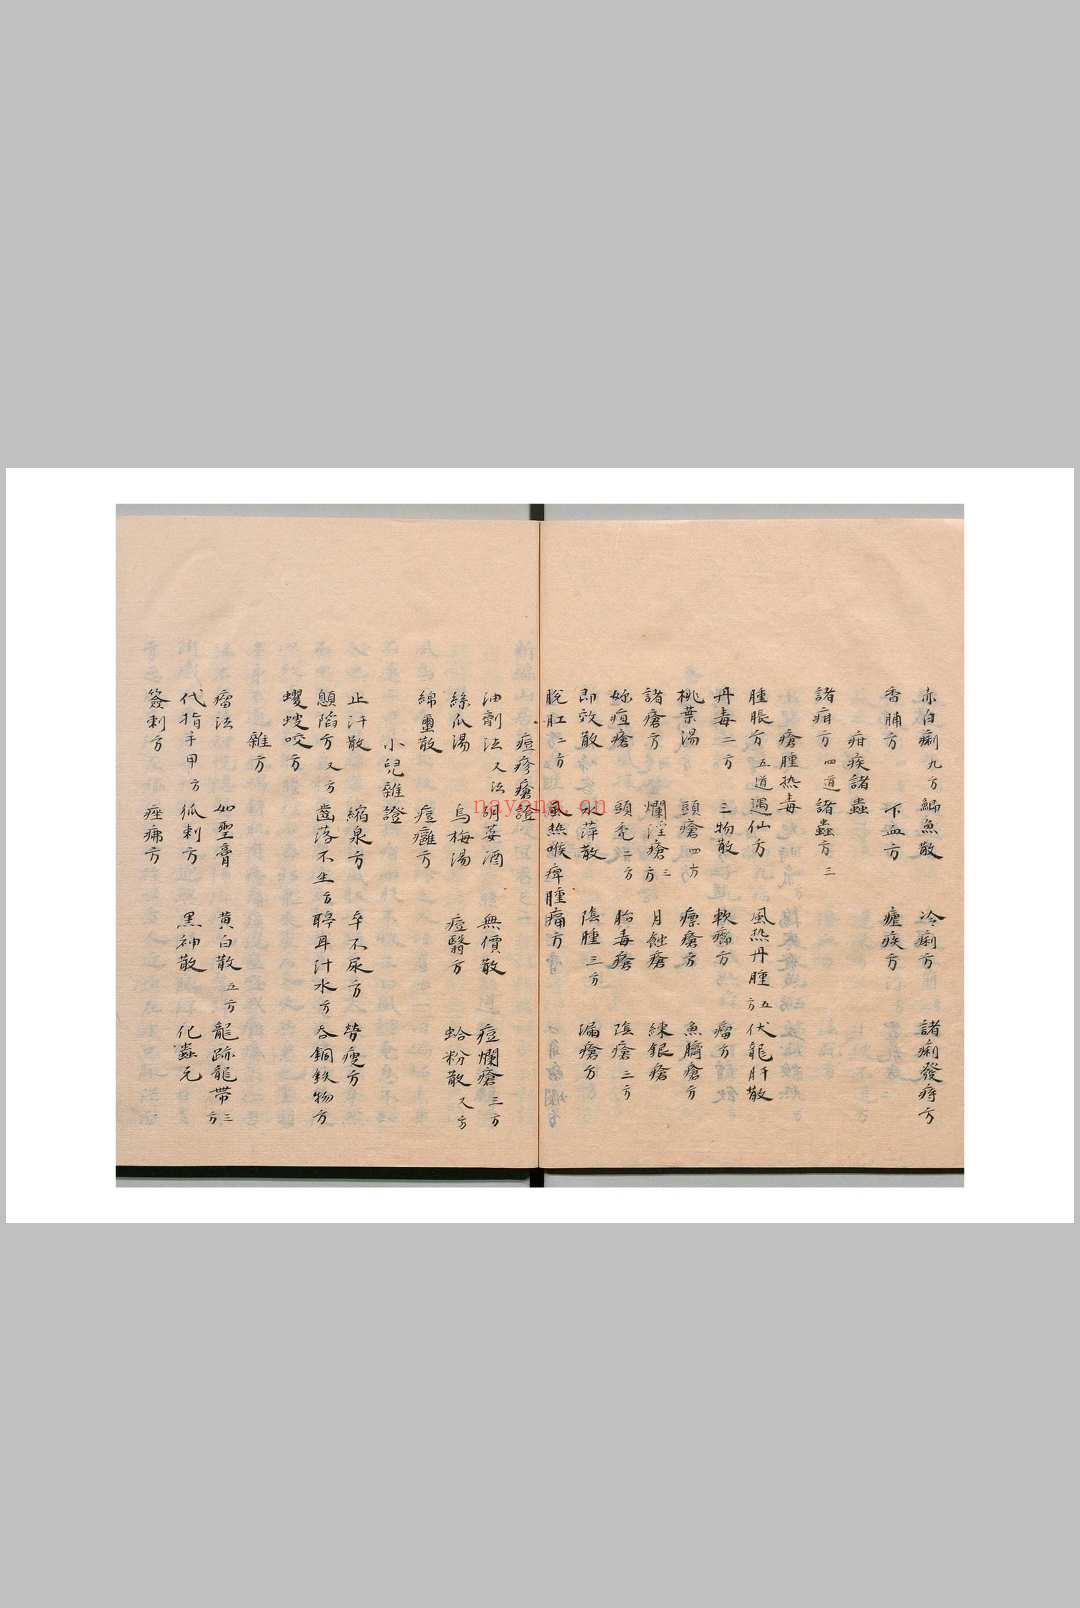 赤白痢九方 鯽魚散 冷痢方 諸痢發痔方
香脯方 下血方 瘧疾方
疳疾諸蟲
諸疳方四道 諸蟲方三
瘡腫热毒
腫脹方五道 遇仙方 風热丹腫五方 伏龍肝散
丹毒二方 三物散 軟癤方 瘤方
桃葉湯 頭瘡四方 瘭瘡方 魚臍瘡方
諸瘡方 爛滛瘡三方 月蝕瘡 練銀瘡
妬疽瘡 頭禿二方 胎毒瘡 陰瘡三方
即效散 水萍散 陰腫三方 漏瘡方
脫肛二方 風热喉痺腫痛方
痘疹瘡證
油劑法又法 胡荽酒 無價散 痘爛瘡三方
絲瓜湯 烏梅湯 痘醫方 蛤粉散又方
綿璽散 痘癰方
小兒雜證
止汗散 縮泉方 卒不尿方 勞瘦方
顖陷方又方 齒落不生方 聤耳汁水方 吞銅鉄物方
蠼螋咬方
雜方
瘤法 如聖膏 黄白散五方 龍跡龍帶三方
代指手甲方 狐刺方 黑神散 化蟲元
簽刺方 痤疿方
nayona.cn